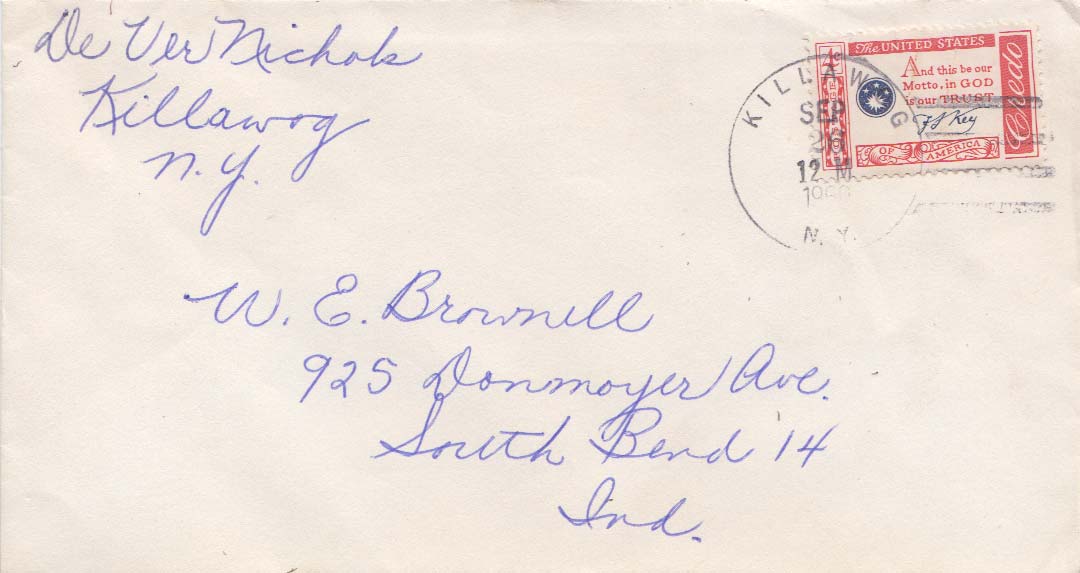 De Ver Nichols
Killawog
N.Y.
The UNITED STATES
And this be our
Motto, in GOD
is our TRUST
FS Key
OF AMERICA
Credo
4¢
POSTAGE
KILLAWOG
SEP
26
12 M
N. Y.
W. E. Brownell
925 Donmoyer Ave.
South Bend 14
Ind.